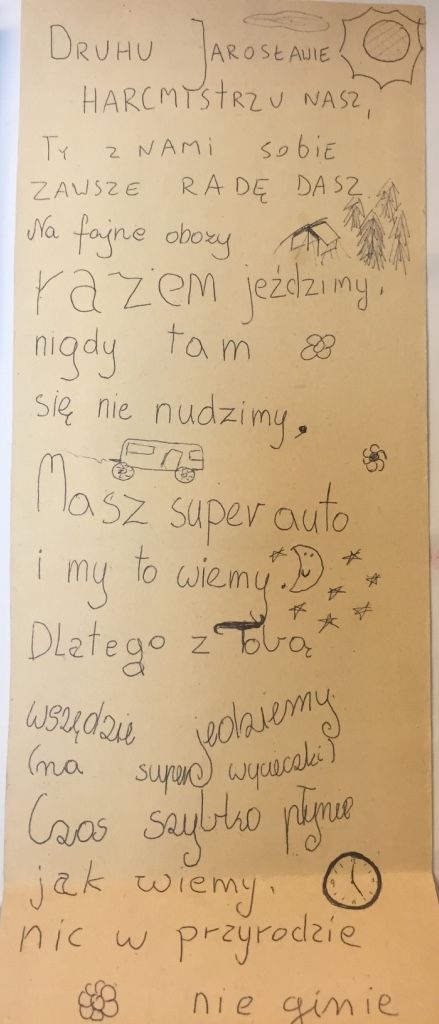 DRUHU JAROSŁAWIE
HARCMISTRZU NASZ,
TY Z NAMI SOBIE
ZAWSZE RADĘ DASZ
Na fajne obozy
razem jeździmy,
nigdy tam
się nie nudzimy,
Masz super auto
i my to wiemy.
Dlatego z Tobą
wszędzie jedziemy
(na super wycieczki)
Czas szybko płynie
jak wiemy.
nic w przyrodzie
nie ginie